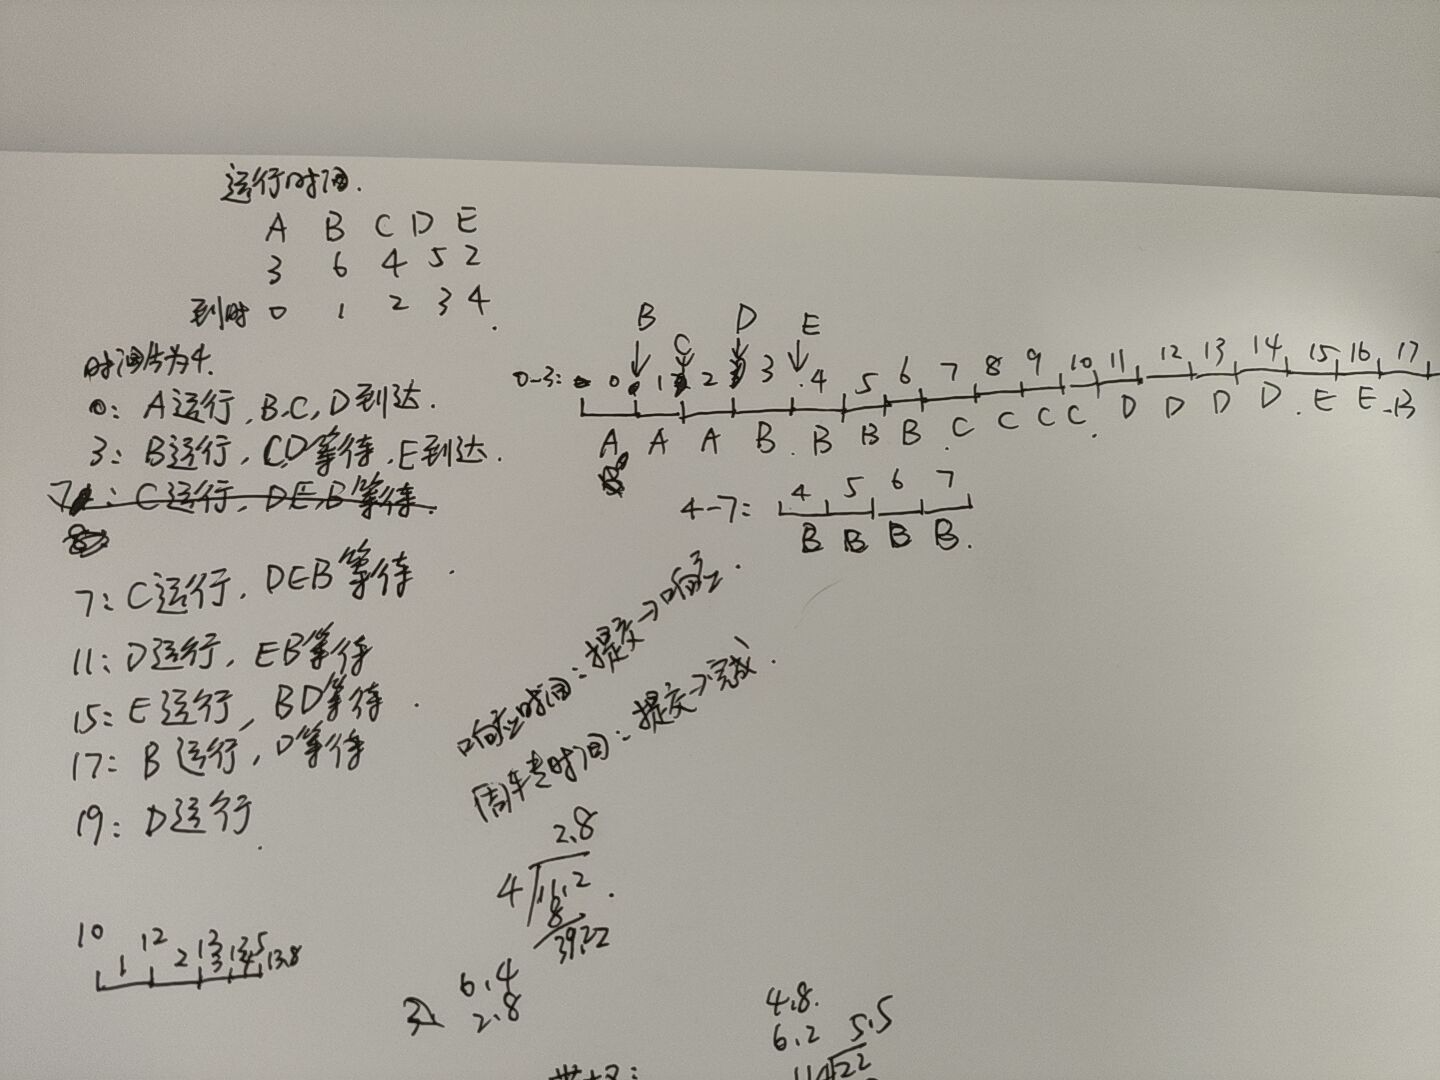 运行时间.
A B C D E
3 6 4 5 2
到时 0 1 2 3 4.
时间片为4.
0: A运行, B, C, D到达.
3: B运行, C,D等待, E到达.
7: C运行, DE,B等待.
7: C运行, DEB等待.
11: D运行, EB等待
15: E运行, BD等待.
17: B运行, D等待
19: D运行.
B C D E
0-3: 0 1 2 3 4 5 6 7 8 9 10 11 12 13 14 15 16 17
A A A B B B B C C C C D D D D E E B
4-7: 4 5 6 7
B B B B.
响应时间: 提交→响应.
周转时间: 提交→完成.
2.8
4 16.2
8
39.22
10 12 13 13.5 13.8
1 2 3 4
6.4
2.8
4.8.
6.2 5.5
22